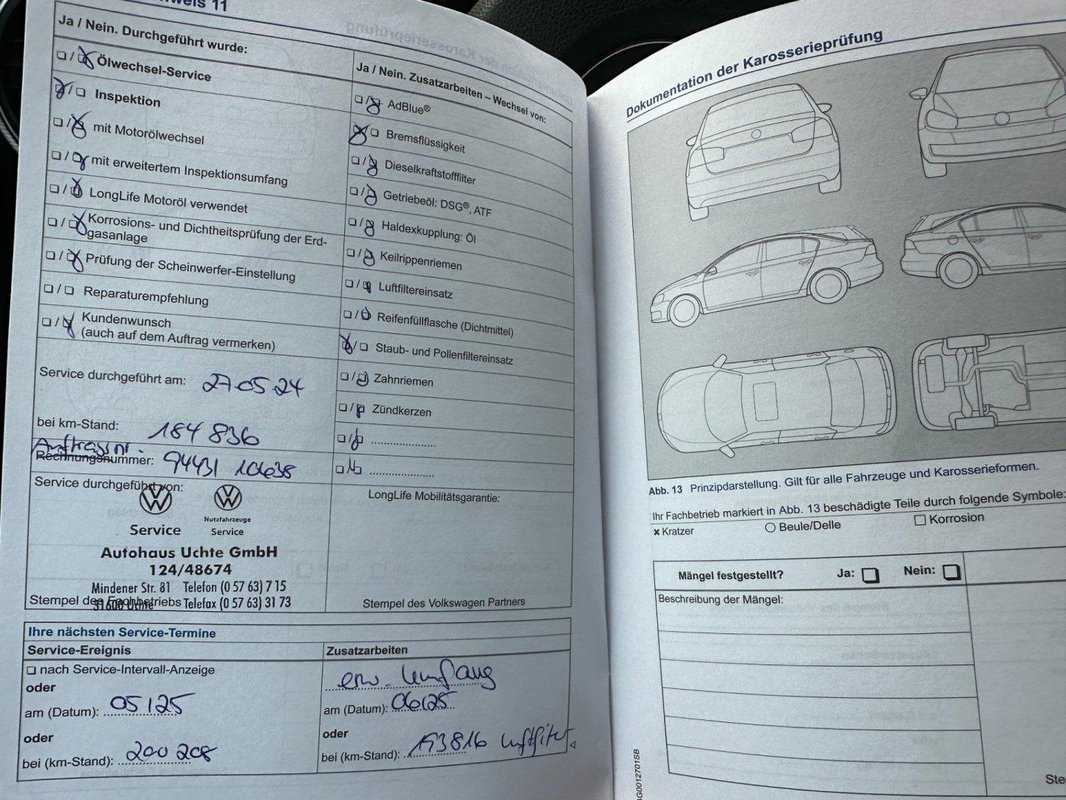 weis 11
Ja / Nein. Durchgeführt wurde:
❏ / ❏ Ölwechsel-Service
❏ / ❏ Inspektion
❏ / ❏ mit Motorölwechsel
❏ / ❏ mit erweitertem Inspektionsumfang
❏ / ❏ LongLife Motoröl verwendet
❏ / ❏ Korrosions- und Dichtheitsprüfung der Erd-
gasanlage
❏ / ❏ Prüfung der Scheinwerfer-Einstellung
❏ / ❏ Reparaturempfehlung
❏ / ❏ Kundenwunsch
(auch auf dem Auftrag vermerken)
Service durchgeführt am: 27.05.24
bei km-Stand: 184 836
Auftragsnr.
Rechnungsnummer: 94431 106638
Service durchgeführt von:
Service
Nutzfahrzeuge
Service
Autohaus Uchte GmbH
124/48674
Mindener Str. 81 Telefon (0 57 63) 7 15
31600 Uchte Telefax (0 57 63) 31 73
Stempel des Fachbetriebs
Ja / Nein. Zusatzarbeiten – Wechsel von:
❏ / ❏ AdBlue®
❏ / ❏ Bremsflüssigkeit
❏ / ❏ Dieselkraftstofffilter
❏ / ❏ Getriebeöl: DSG®, ATF
❏ / ❏ Haldexkupplung: Öl
❏ / ❏ Keilrippenriemen
❏ / ❏ Luftfiltereinsatz
❏ / ❏ Reifenfüllflasche (Dichtmittel)
❏ / ❏ Staub- und Pollenfiltereinsatz
❏ / ❏ Zahnriemen
❏ / ❏ Zündkerzen
❏ / ❏ ....................
❏ / ❏ ....................
LongLife Mobilitätsgarantie:
Stempel des Volkswagen Partners
Ihre nächsten Service-Termine
Service-Ereignis
❏ nach Service-Intervall-Anzeige
oder
am (Datum): 05/25
oder
bei (km-Stand): 200 208
Zusatzarbeiten
erw. Umfang
am (Datum): 06/25
oder
bei (km-Stand): 193816 Luftfilter
Dokumentation der Karosserieprüfung
Abb. 13 Prinzipdarstellung. Gilt für alle Fahrzeuge und Karosserieformen.
Ihr Fachbetrieb markiert in Abb. 13 beschädigte Teile durch folgende Symbole:
× Kratzer ○ Beule/Delle ☐ Korrosion
Mängel festgestellt? Ja: ❏ Nein: ❏
Beschreibung der Mängel:
Ste